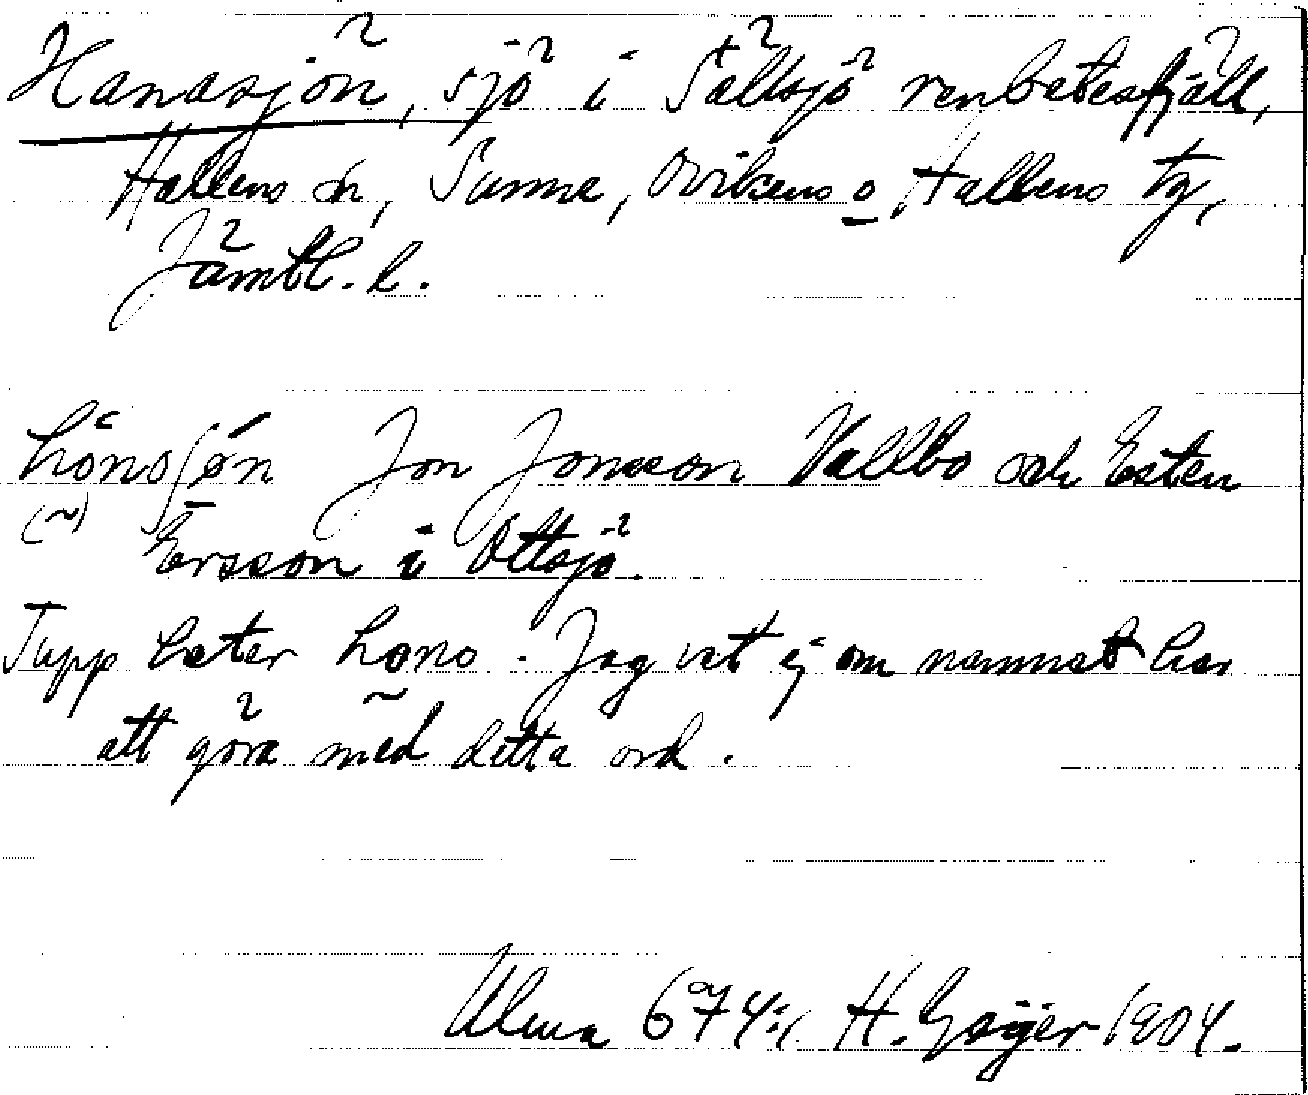 Hanasjön, sjö i Sällsjö renbetesfjäll,
Hallens sn, Sunne, Ovikens o Hallens tg,
Jämtl. l.
hónosjøn Jon Jonsson Vallbo och Esten
(~) Ersson i Ottsjö.
Tupp heter hono. Jag vet ej om namnet har
att göra med detta ord.
Alma 674:1. H. Geijer 1904.